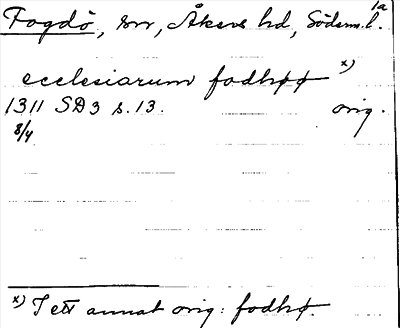 1a
Fogdö, sn, Åkers hd, Södsml.
ecclesiarum fodhøø x)
1311 SD3 s. 13. orig.
8/4
x) I ett annat orig: fodhø.